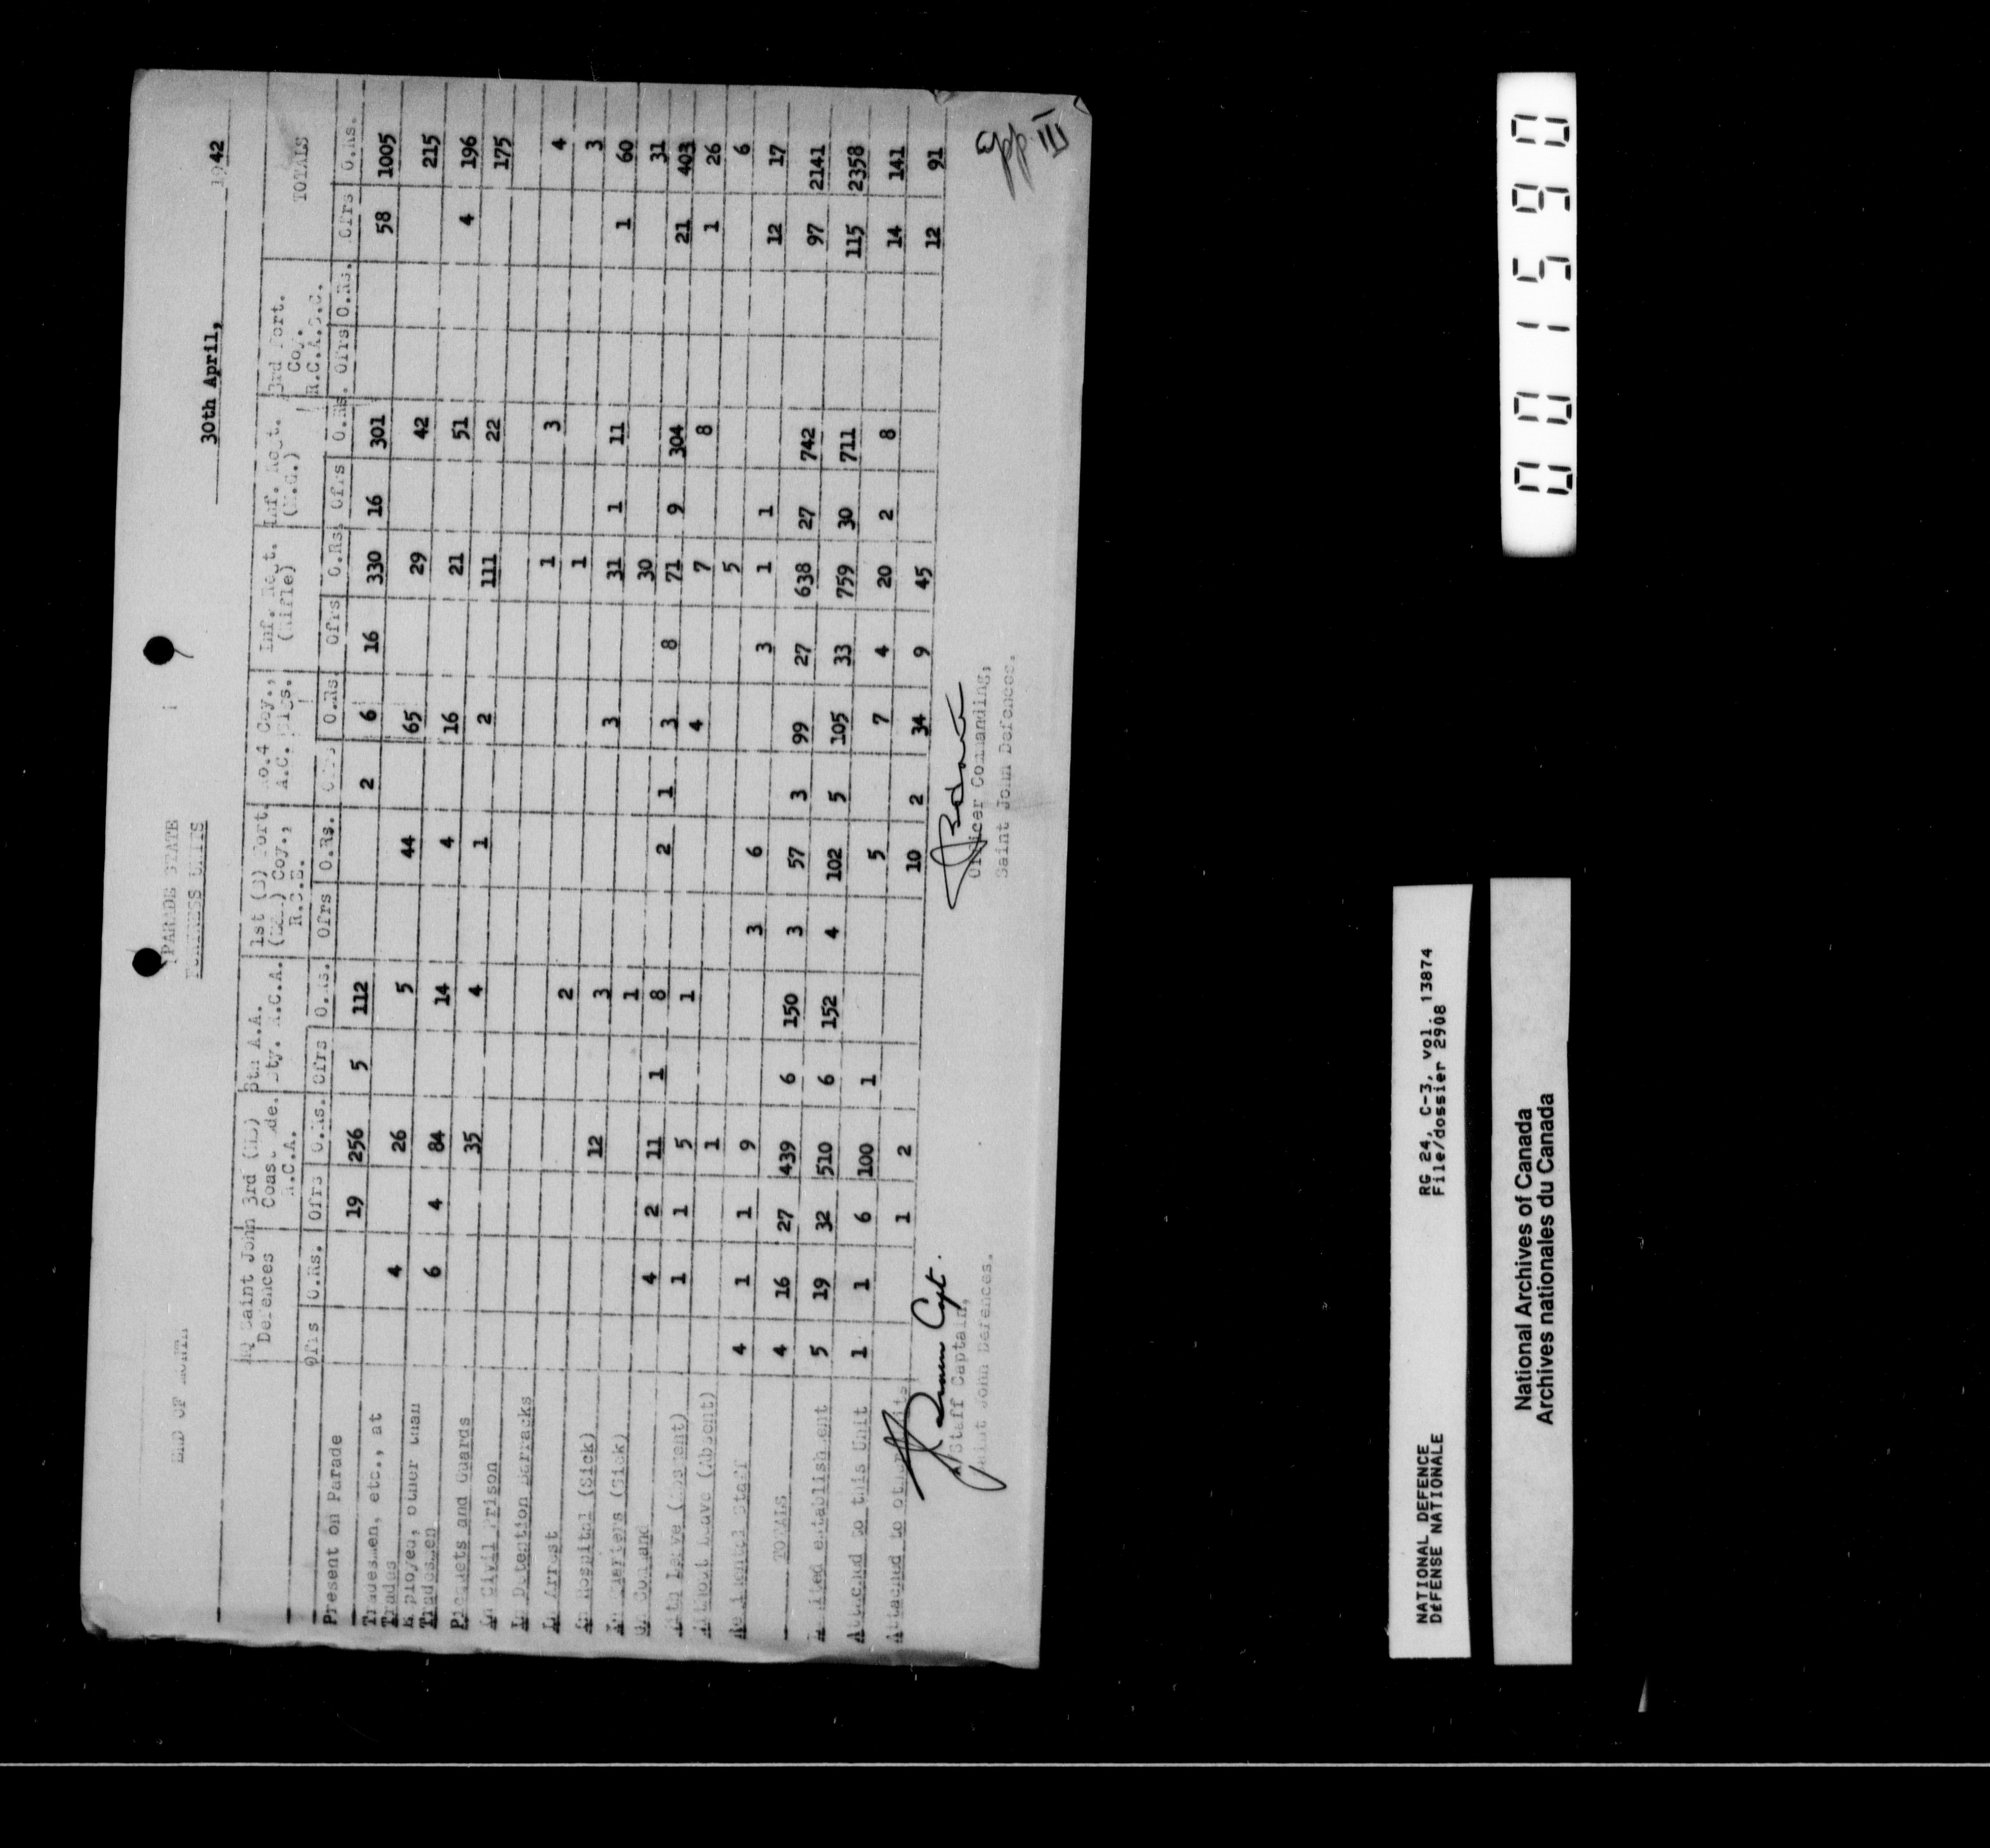 END OF MONTH
PARADE STATE
FORTRESS UNITS
30th April, 1942
HQ Saint John Defences 3rd (NB) Coast Bde. R.C.A. 8th A.A. Bty. R.C.A. 1st (S) Fort. Coy., R.C.E. No.4 Coy., A.C. Sigs. Inf. Regt. (Rifle) Inf. Regt. (M.G.) 3rd Fort. Coy. R.C.A.S.C. TOTALS
Ofrs O.Rs. Ofrs O.Rs. Ofrs O.Rs. Ofrs O.Rs. Ofrs O.Rs. Ofrs O.Rs. Ofrs O.Rs. Ofrs O.Rs. Ofrs O.Rs.
Present on Parade 19 256 5 112 2 6 16 330 16 301 58 1005
Tradesmen, etc., at Trades 4 26 5 44 65 29 42 215
Employed, other than Tradesmen 6 4 84 14 4 16 21 51 4 196
Picquets and Guards 35 4 1 2 111 22 175
In Civil Prison
In Detention Barracks 1 3 4
In Arrest 2 1 3
In Hospital (Sick) 12 3 3 31 1 11 1 60
In Quarters (Sick) 1 30 31
On Command 4 2 11 1 8 2 1 3 8 71 9 304 21 403
With Leave (Absent) 1 1 5 1 4 7 8 1 26
Without Leave (Absent) 1 5 6
Regimental Staff 4 1 1 9 3 6 3 1 1 12 17
TOTALS 4 16 27 439 6 150 3 57 3 99 27 638 27 742 97 2141
Limited establishment 5 19 32 510 6 152 4 102 5 105 33 759 30 711 115 2358
Attached to this Unit 1 1 6 100 1 5 7 4 20 2 8 14 141
Attached to other Units 1 2 10 2 34 9 45 12 91
Capt.
A/Staff Captain,
Saint John Defences.
Officer Commanding,
Saint John Defences.
III
NATIONAL DEFENCE
DÉFENSE NATIONALE
RG 24, C-3, vol. 13874
File/dossier 2908
National Archives of Canada
Archives nationales du Canada
001590